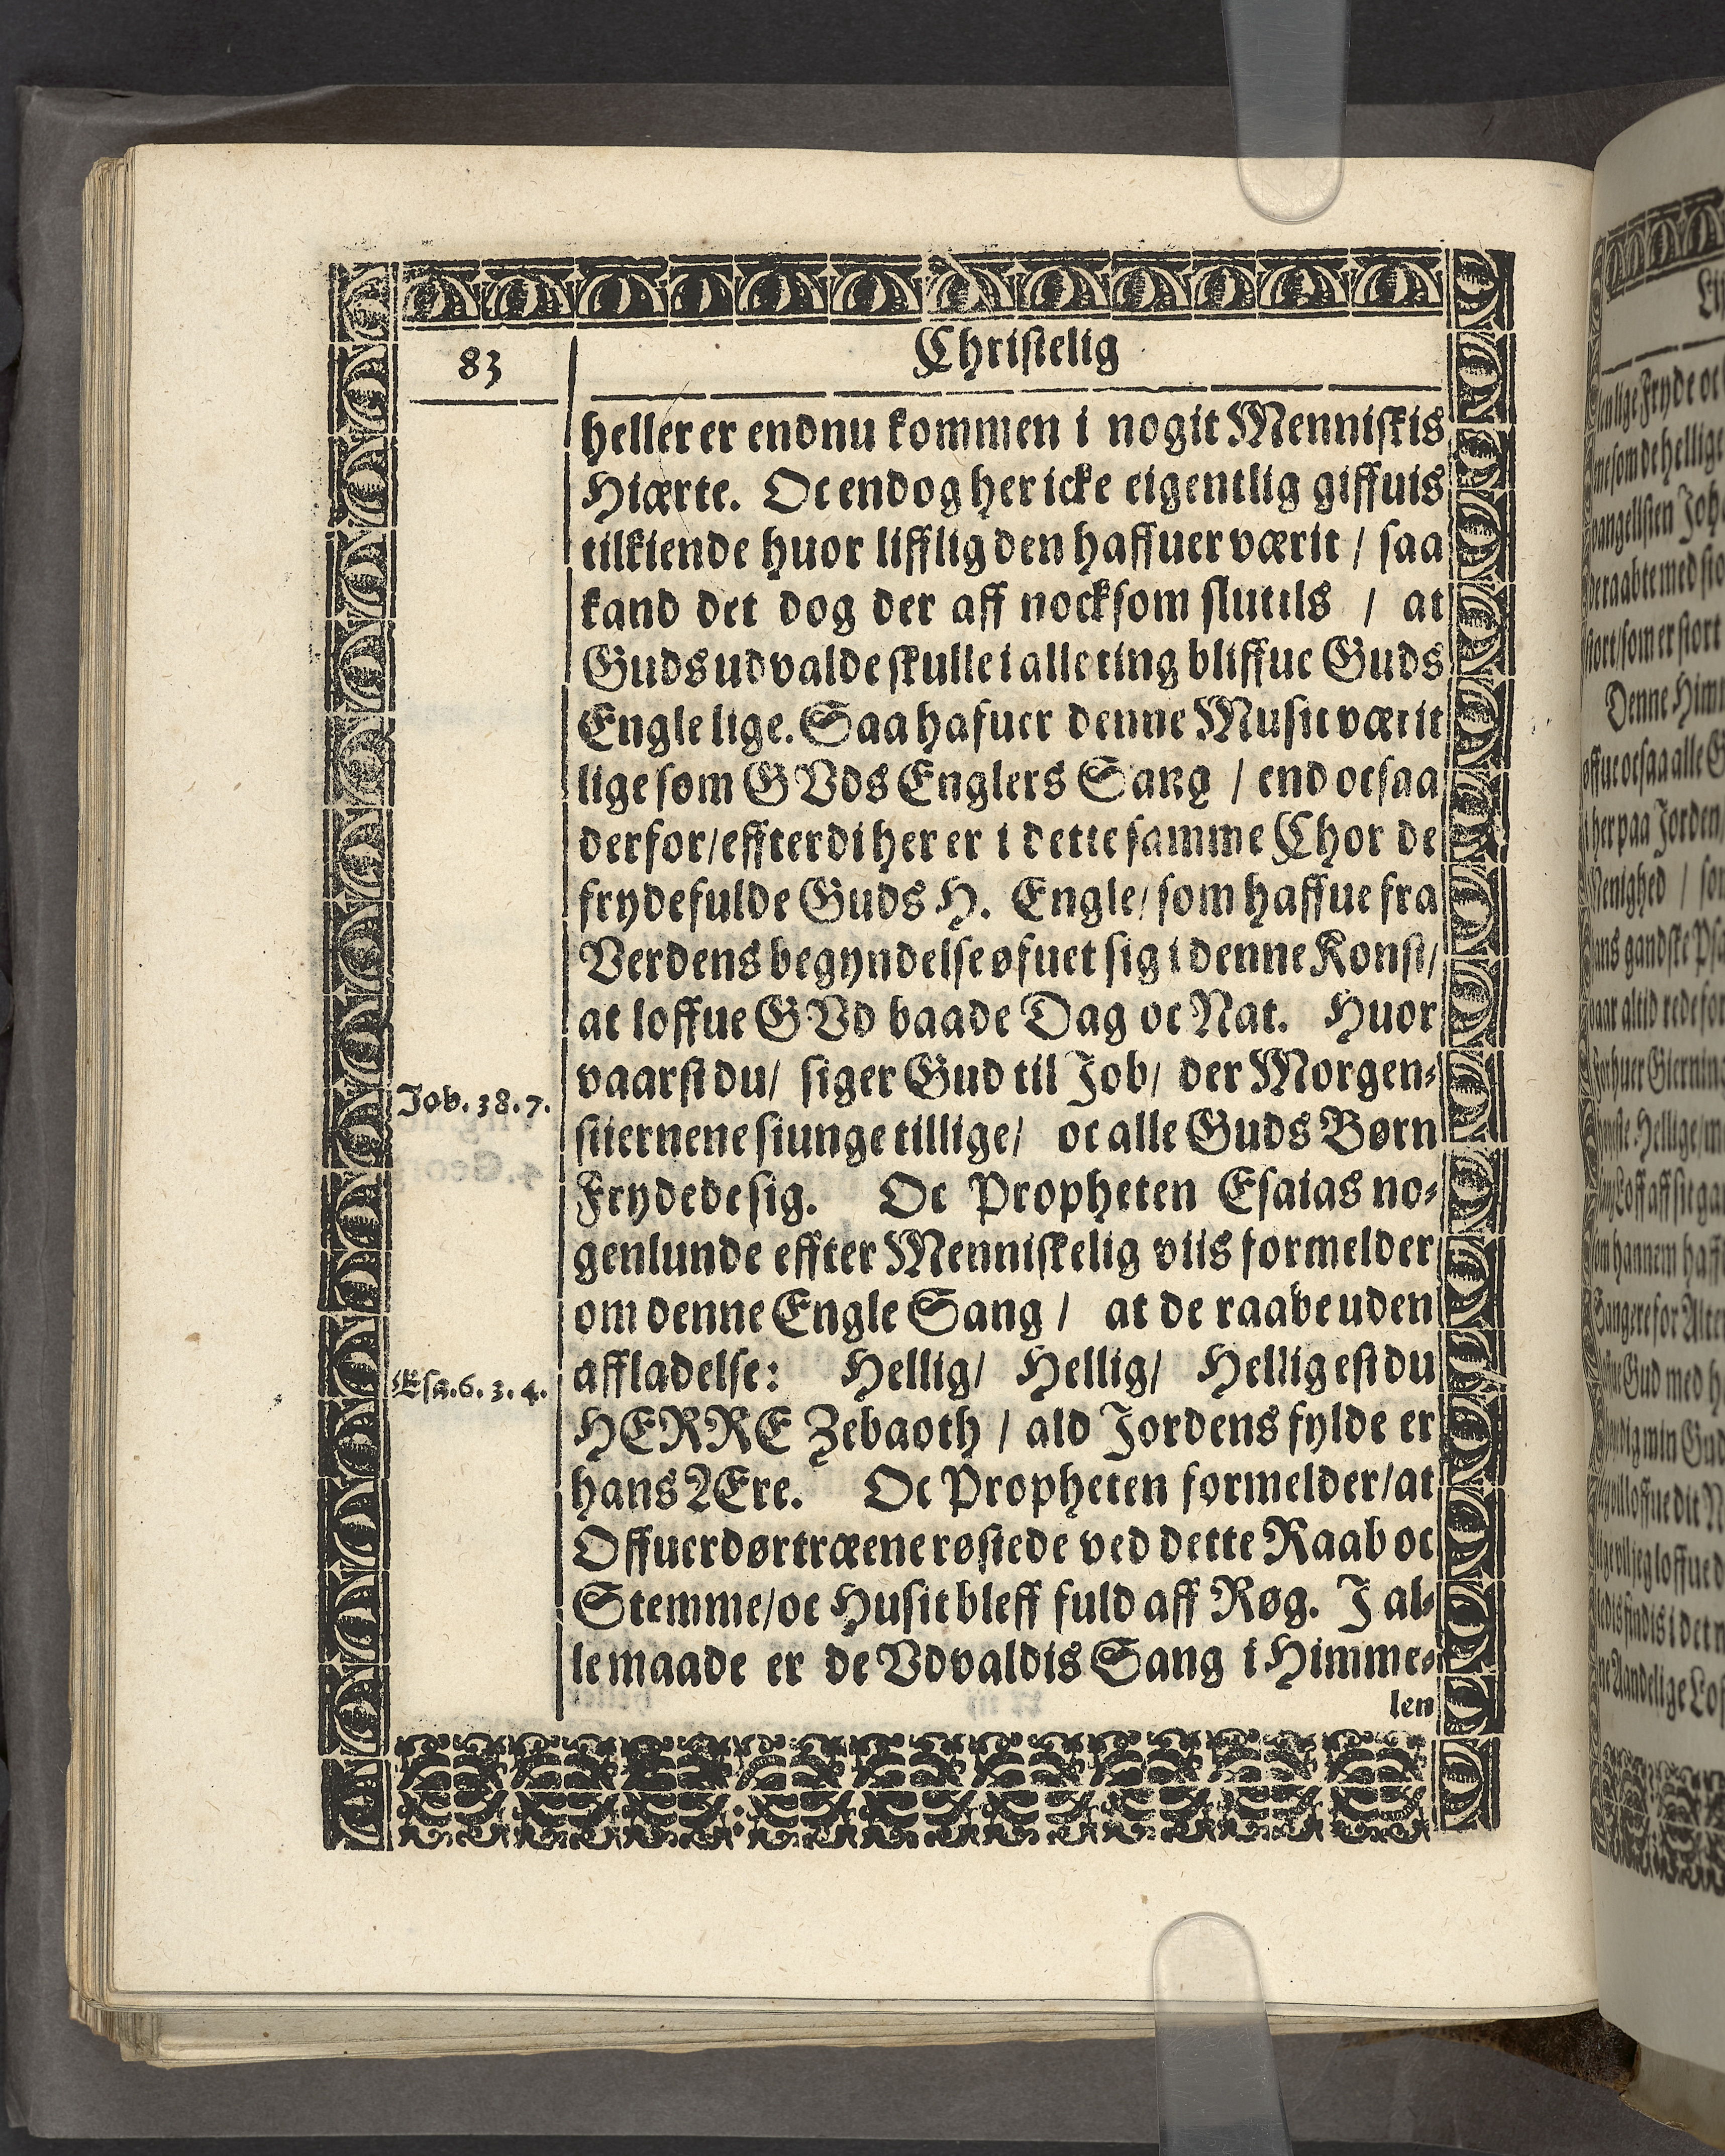 83
Christelig
heller er endnu kommen i nogit Menniskis
Hiærte. Oc endog her icke eigentlig giffuis
tilkiende huor lifflig den haffuer værit / saa
kand det dog der aff nocksom sluttis / at
Guds udvalde skulle i alle ting bliffue Guds
Engle lige. Saa hafuer denne Musit værit
lige som GVds Englers Sang / end ocsaa
derfor/effterdi her er i dette samme Chor de
frydefulde Guds H. Engle/ som haffue fra
Verdens begyndelse øfuet sig i denne Konst/
at loffue GVd baade Dag oc Nat. Huor
Job. 38. 7.
vaarst du/ siger Gud til Job/ der Morgen-
stiernene siunge tillige/ oc alle Guds Børn
Frydede sig. Oc Propheten Esaias no-
genlunde effter Menniskelig viis formelder
om denne Engle Sang / at de raabe uden
Esa. 6. 3. 4.
affladelse: Hellig/ Hellig/ Hellig est du
HERRE Zebaoth / ald Jordens fylde er
hans Ære. Oc Propheten formelder/at
Offuerdørtræene røstede ved dette Raab oc
Stemme/oc Husit bleff fuld aff Røg. J al-
le maade er de Vdvaldis Sang i Himme-
len